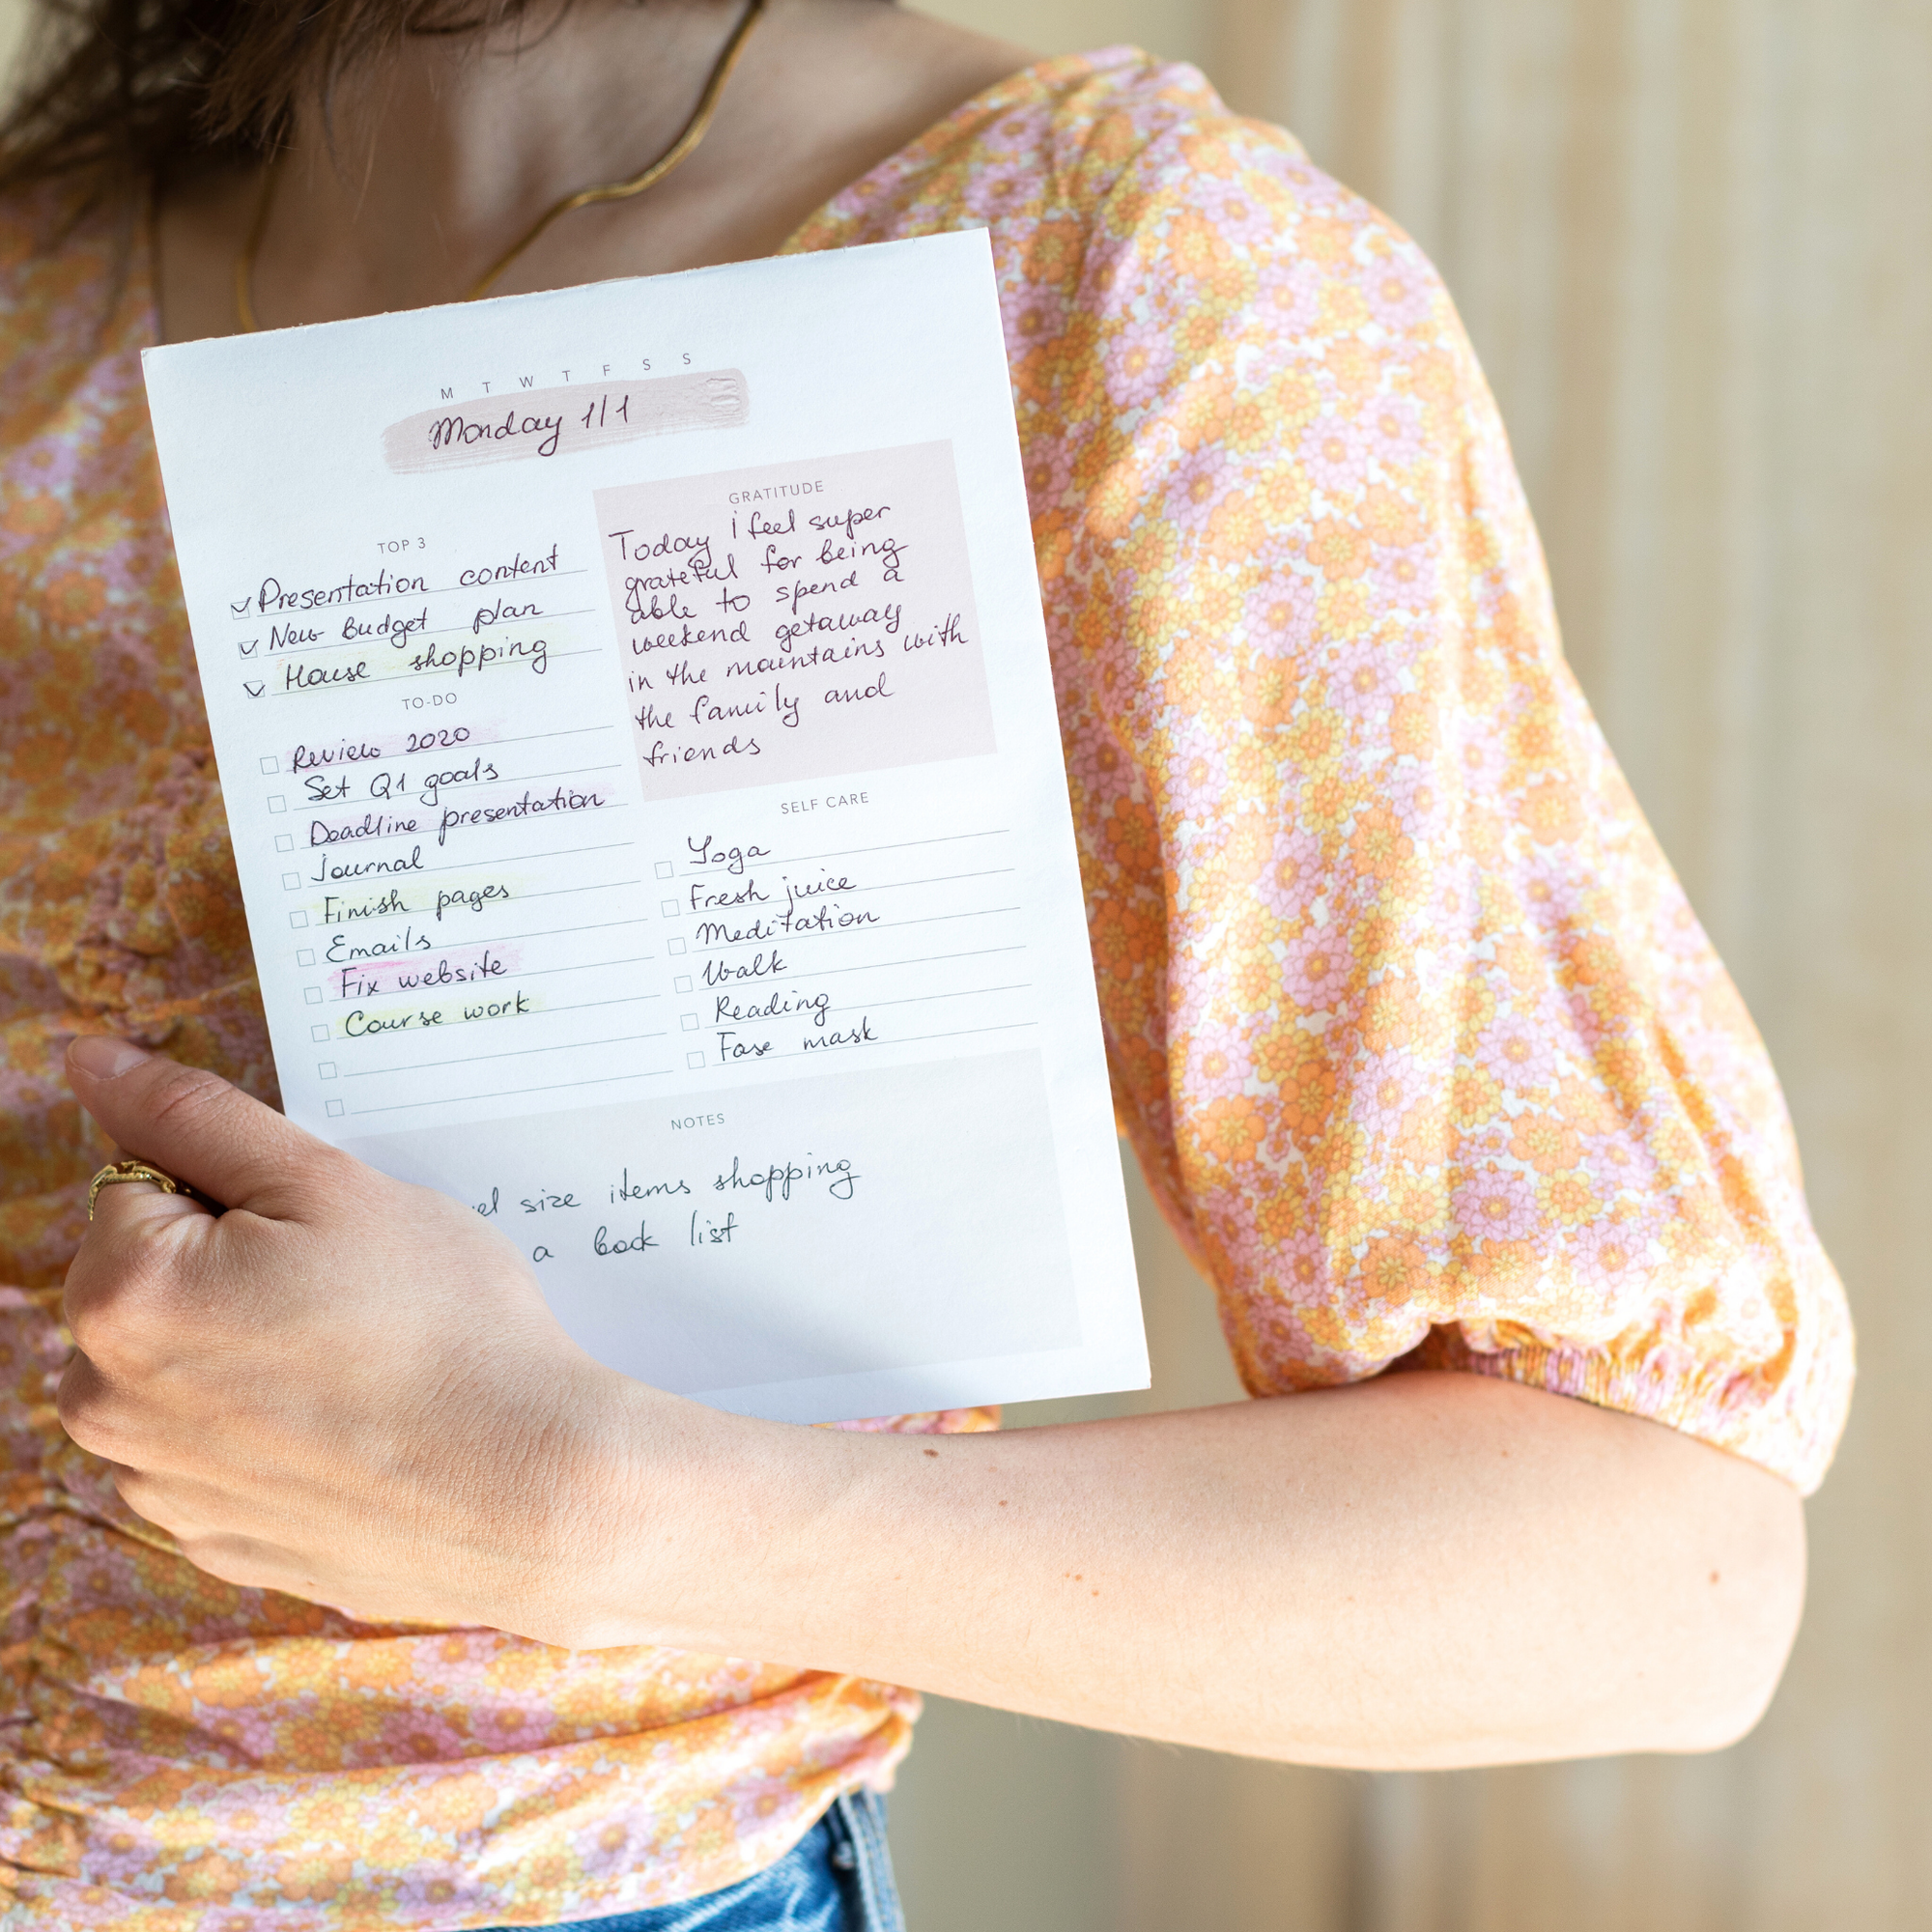 M T W T F S S
Monday 1/1
TOP 3
Presentation content
New Budget plan
House shopping
TO-DO
Review 2020
Set Q1 goals
Deadline presentation
Journal
Finish pages
Emails
Fix website
Course work
GRATITUDE
Today i feel super
grateful for being
able to spend a
weekend getaway
in the maintains with
the family and
friends
SELF CARE
Yoga
Fresh juice
Meditation
Walk
Reading
Fase mask
NOTES
size items shopping
a book list